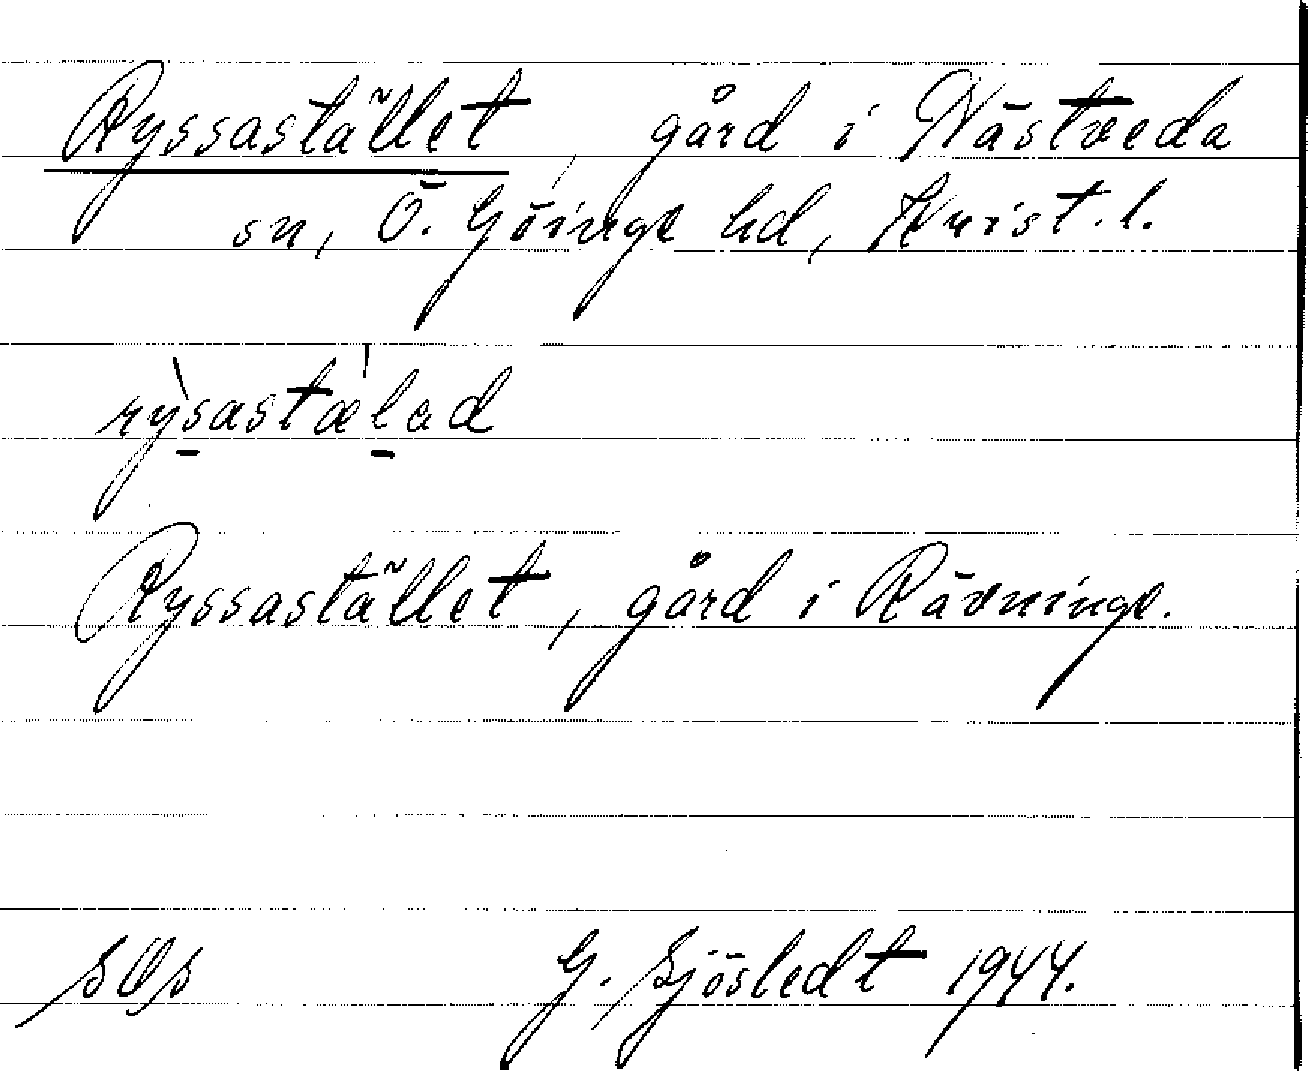 Ryssastället, gård i Nästveda
sn, Ö. Göinge hd, Krist. l.
rysastælad
Ryssastället, gård i Rävninge.
G. Sjöstedt 1944.